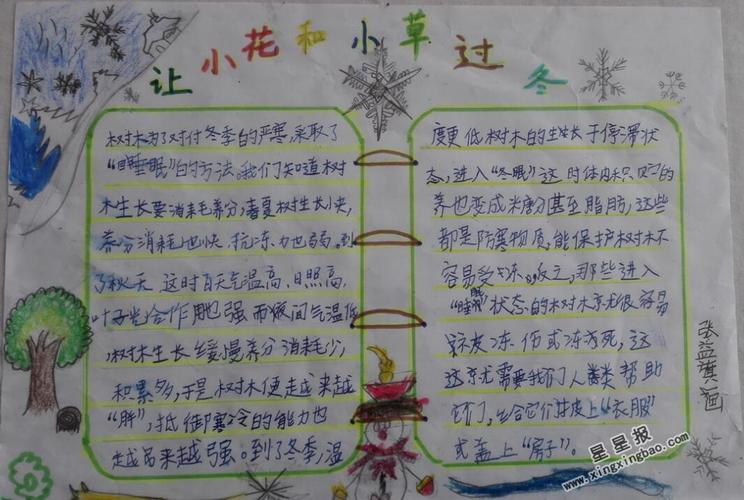 让小花和小草过冬
树木为了对付冬季的严寒,采取了
“睡眠”的方法。我们知道树
木生长要消耗养分,春夏树生长快,
养分消耗也快,抗冻力也弱。到
了秋天 这时白天气温高、日照高,
叶子光合作用也强 而夜间气温低
,树木生长缓慢养分消耗少,
积累多,于是树木便越来越
“胖”,抵御寒冷的能力也
越来越强。到了冬季,温
度更低树木的生长于停滞状
态,进入“冬眠”这时体内积贮的
养也变成米唐分甚至脂肪,这些
都是防寒物质,能保护树木不
容易受冻。反之,那些进入
“睡眠”状态的树木就很容易
被冻伤或冻死,这
这就需要我们人类帮助
它们,给它们披上“衣服”
或盖上“房子”。
张益淇画
星星报
www.xingxingbao.com